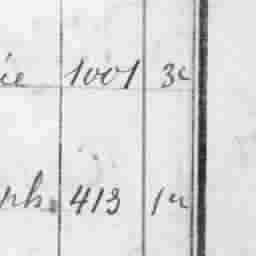 ie 1001 3e
ph. 413 1er